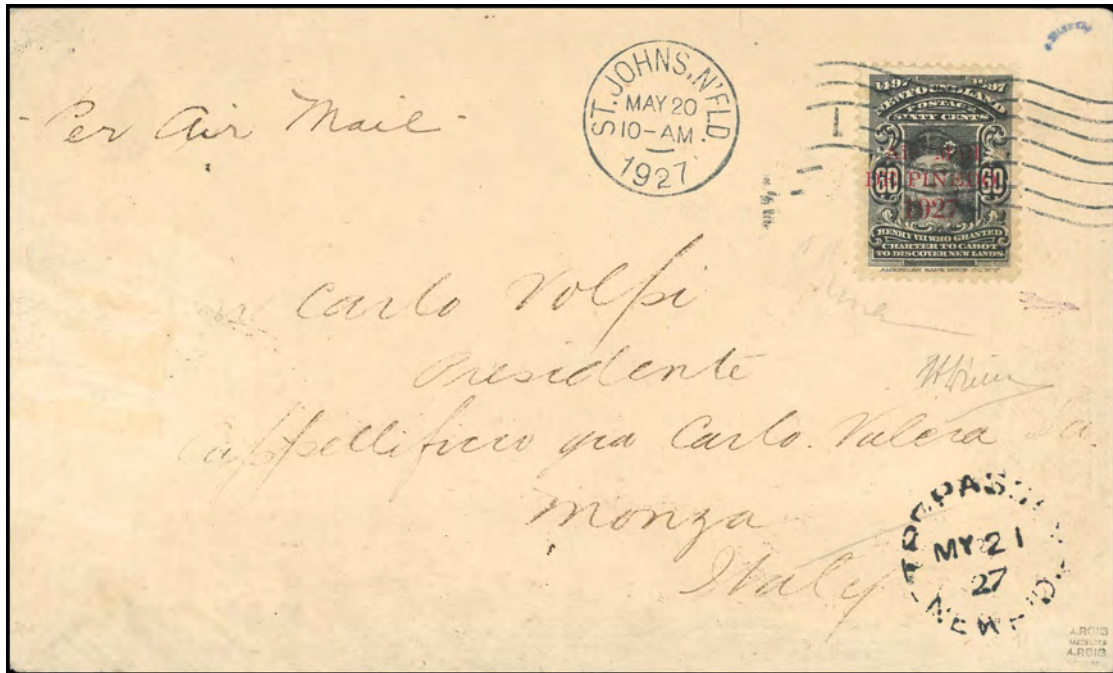 - Per Air Mail -
ST. JOHNS, N'FLD.
MAY 20
10-AM
1927
1
1497 1897
NEWFOUNDLAND
POSTAGE
SIXTY CENTS
AIR MAIL
DE PINEDO
1927
60 60
HENRY VII WHO GRANTED
CHARTER TO CABOT
TO DISCOVER NEW LANDS
AMERICAN BANK NOTE CO. N.Y.
Carlo Volpi
Presidente
Cappellificio gia Carlo. Valera Sa.
Monza
Italy
TREPASSEY
MY 21
27
NEWF'D.
A.ROIG
A.ROIG